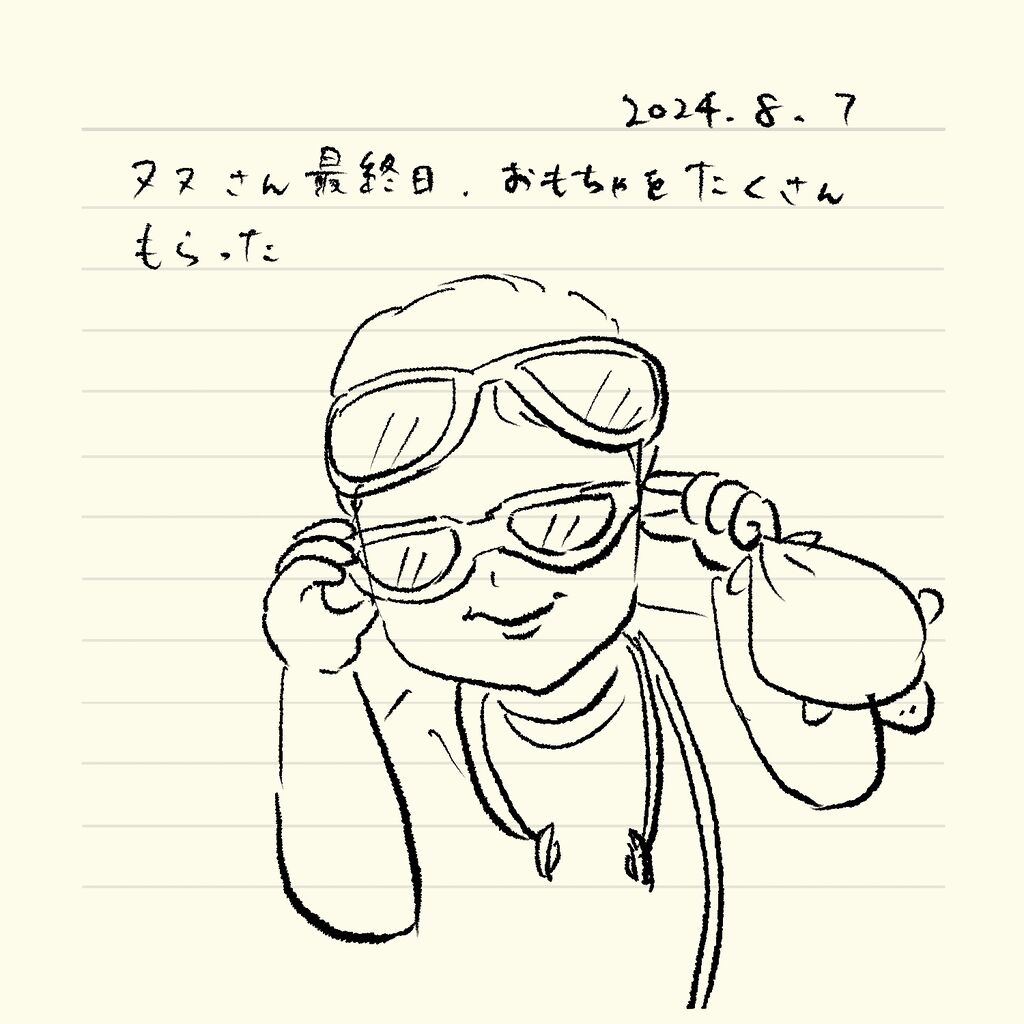 2024.8.7
ヌヌさん最終日.おもちゃをたくさん
もらった